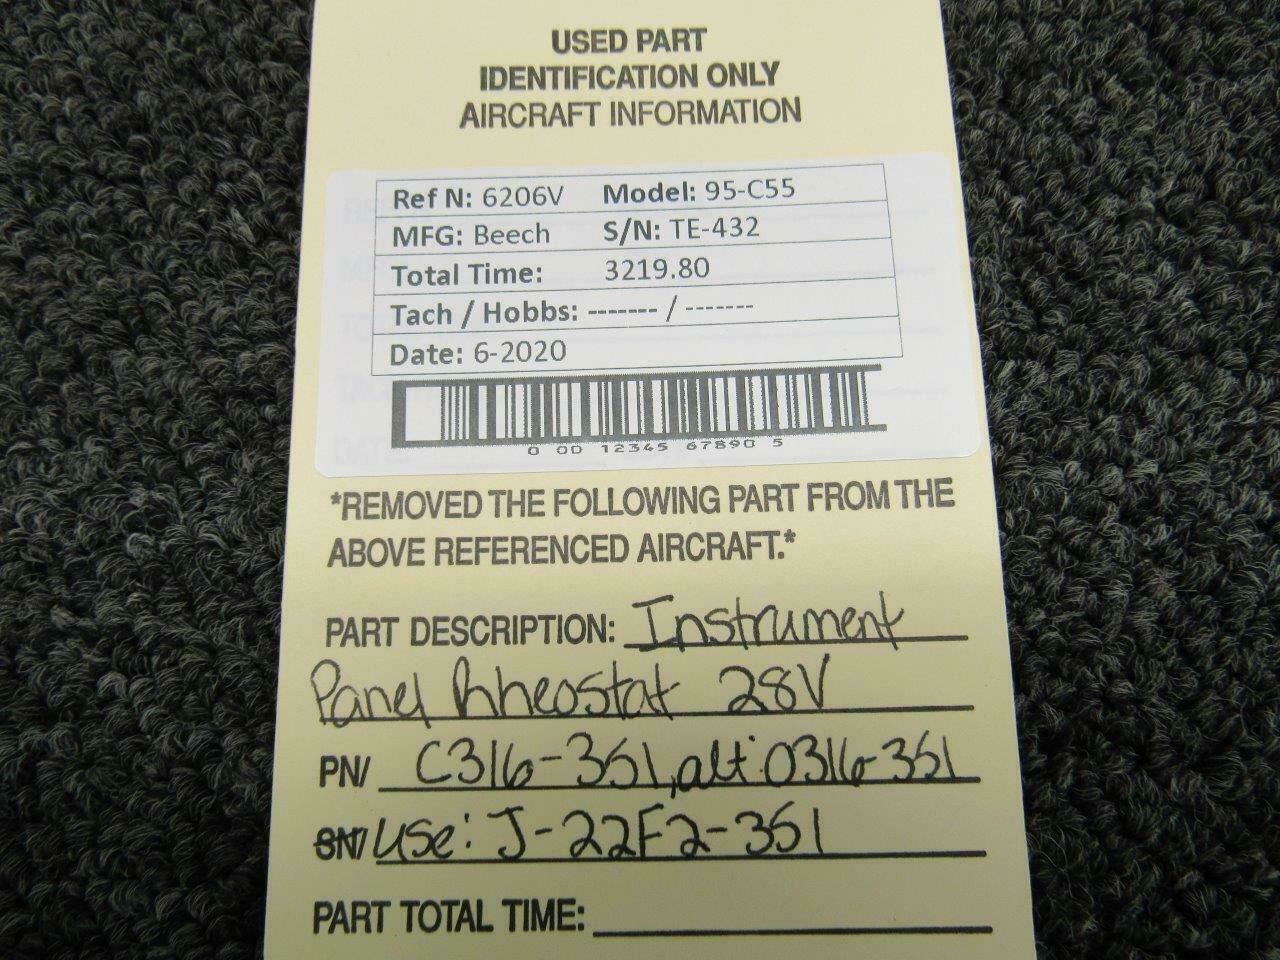 USED PART
IDENTIFICATION ONLY
AIRCRAFT INFORMATION
Ref N: 6206V Model: 95-C55
MFG: Beech S/N: TE-432
Total Time: 3219.80
Tach / Hobbs: ------- / -------
Date: 6-2020
0 00 12345 67890 5
*REMOVED THE FOLLOWING PART FROM THE
ABOVE REFERENCED AIRCRAFT.*
PART DESCRIPTION: Instrument
Panel Rheostat 28V
PN/ C316-351, alt: 0316-351
SN/ Use: J-22F2-351
PART TOTAL TIME: